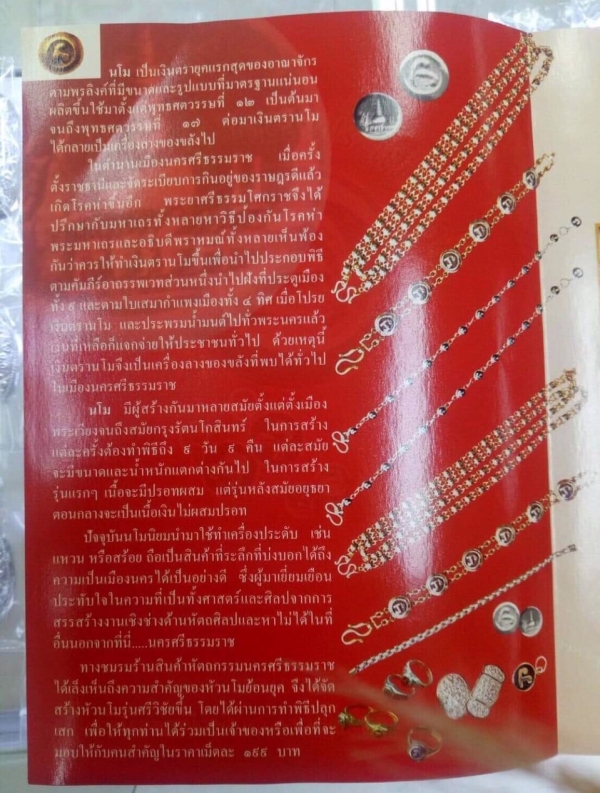 นโม เป็นเงินตรายุคแรกสุดของอาณาจักร
ตามพรลิงค์ที่มีขนาดและรูปแบบที่มาตรฐานแน่นอน
ผลิตขึ้นใช้มาตั้งแต่พุทธศตวรรษที่ ๑๒ เป็นต้นมา
จนถึงพุทธศตวรรษที่ ๑๗ ต่อมาเงินตรานโม
ได้กลายเป็นเครื่องลางของขลังไป
ในตำนานเมืองนครศรีธรรมราช เมื่อครั้ง
ตั้งราชธานีและจัดระเบียบการกินอยู่ของราษฎรดีแล้ว
เกิดโรคห่าขึ้นอีก พระยาศรีธรรมโศกราชจึงได้
ปรึกษากับมหาเถรทั้งหลายหาวิธีป้องกันโรคห่า
พระมหาเถรและอธิบดีพราหมณ์ทั้งหลายเห็นพ้อง
กันว่าควรให้ทำเงินตรานโมขึ้นเพื่อนำไปประกอบพิธี
ตามคัมภีร์อาถรรพเวทส่วนหนึ่งนำไปฝังที่ประตูเมือง
ทั้ง ๙ และตามใบเสมากำแพงเมืองทั้ง ๔ ทิศ เมื่อโปรย
เงินตรานโม และประพรมน้ำมนต์ไปทั่วพระนครแล้ว
เงินที่เหลือก็แจกจ่ายให้ประชาชนทั่วไป ด้วยเหตุนี้
เงินตรานโมจึงเป็นเครื่องลางของขลังที่พบได้ทั่วไป
ในเมืองนครศรีธรรมราช
นโม มีผู้สร้างกันมาหลายสมัยตั้งแต่ตั้งเมือง
พระเวียงจนถึงสมัยกรุงรัตนโกสินทร์ ในการสร้าง
แต่ละครั้งต้องทำพิธีถึง ๙ วัน ๙ คืน แต่ละสมัย
จะมีขนาดและน้ำหนักแตกต่างกันไป ในการสร้าง
รุ่นแรกๆ เนื้อจะมีปรอทผสม แต่รุ่นหลังสมัยอยุธยา
ตอนกลางจะเป็นเนื้อเงินไม่ผสมปรอท
ปัจจุบันนโมนิยมนำมาใช้ทำเครื่องประดับ เช่น
แหวน หรือสร้อย ถือเป็นสินค้าที่ระลึกที่บ่งบอกได้ถึง
ความเป็นเมืองนครได้เป็นอย่างดี ซึ่งผู้มาเยี่ยมเยือน
ประทับใจในความที่เป็นทั้งศาสตร์และศิลปจากการ
สรรสร้างงานเชิงช่างด้านหัตถศิลปและหาไม่ได้ในที่
อื่นนอกจากที่นี่.....นครศรีธรรมราช
ทางชมรมร้านสินค้าหัตถกรรมนครศรีธรรมราช
ได้เล็งเห็นถึงความสำคัญของหัวนโมย้อนยุค จึงได้จัด
สร้างหัวนโมรุ่นศรีวิชัยขึ้น โดยได้ผ่านการทำพิธีปลุก
เสก เพื่อให้ทุกท่านได้ร่วมเป็นเจ้าของหรือเพื่อที่จะ
มอบให้กับคนสำคัญในราคาเม็ดละ ๑๙๙ บาท